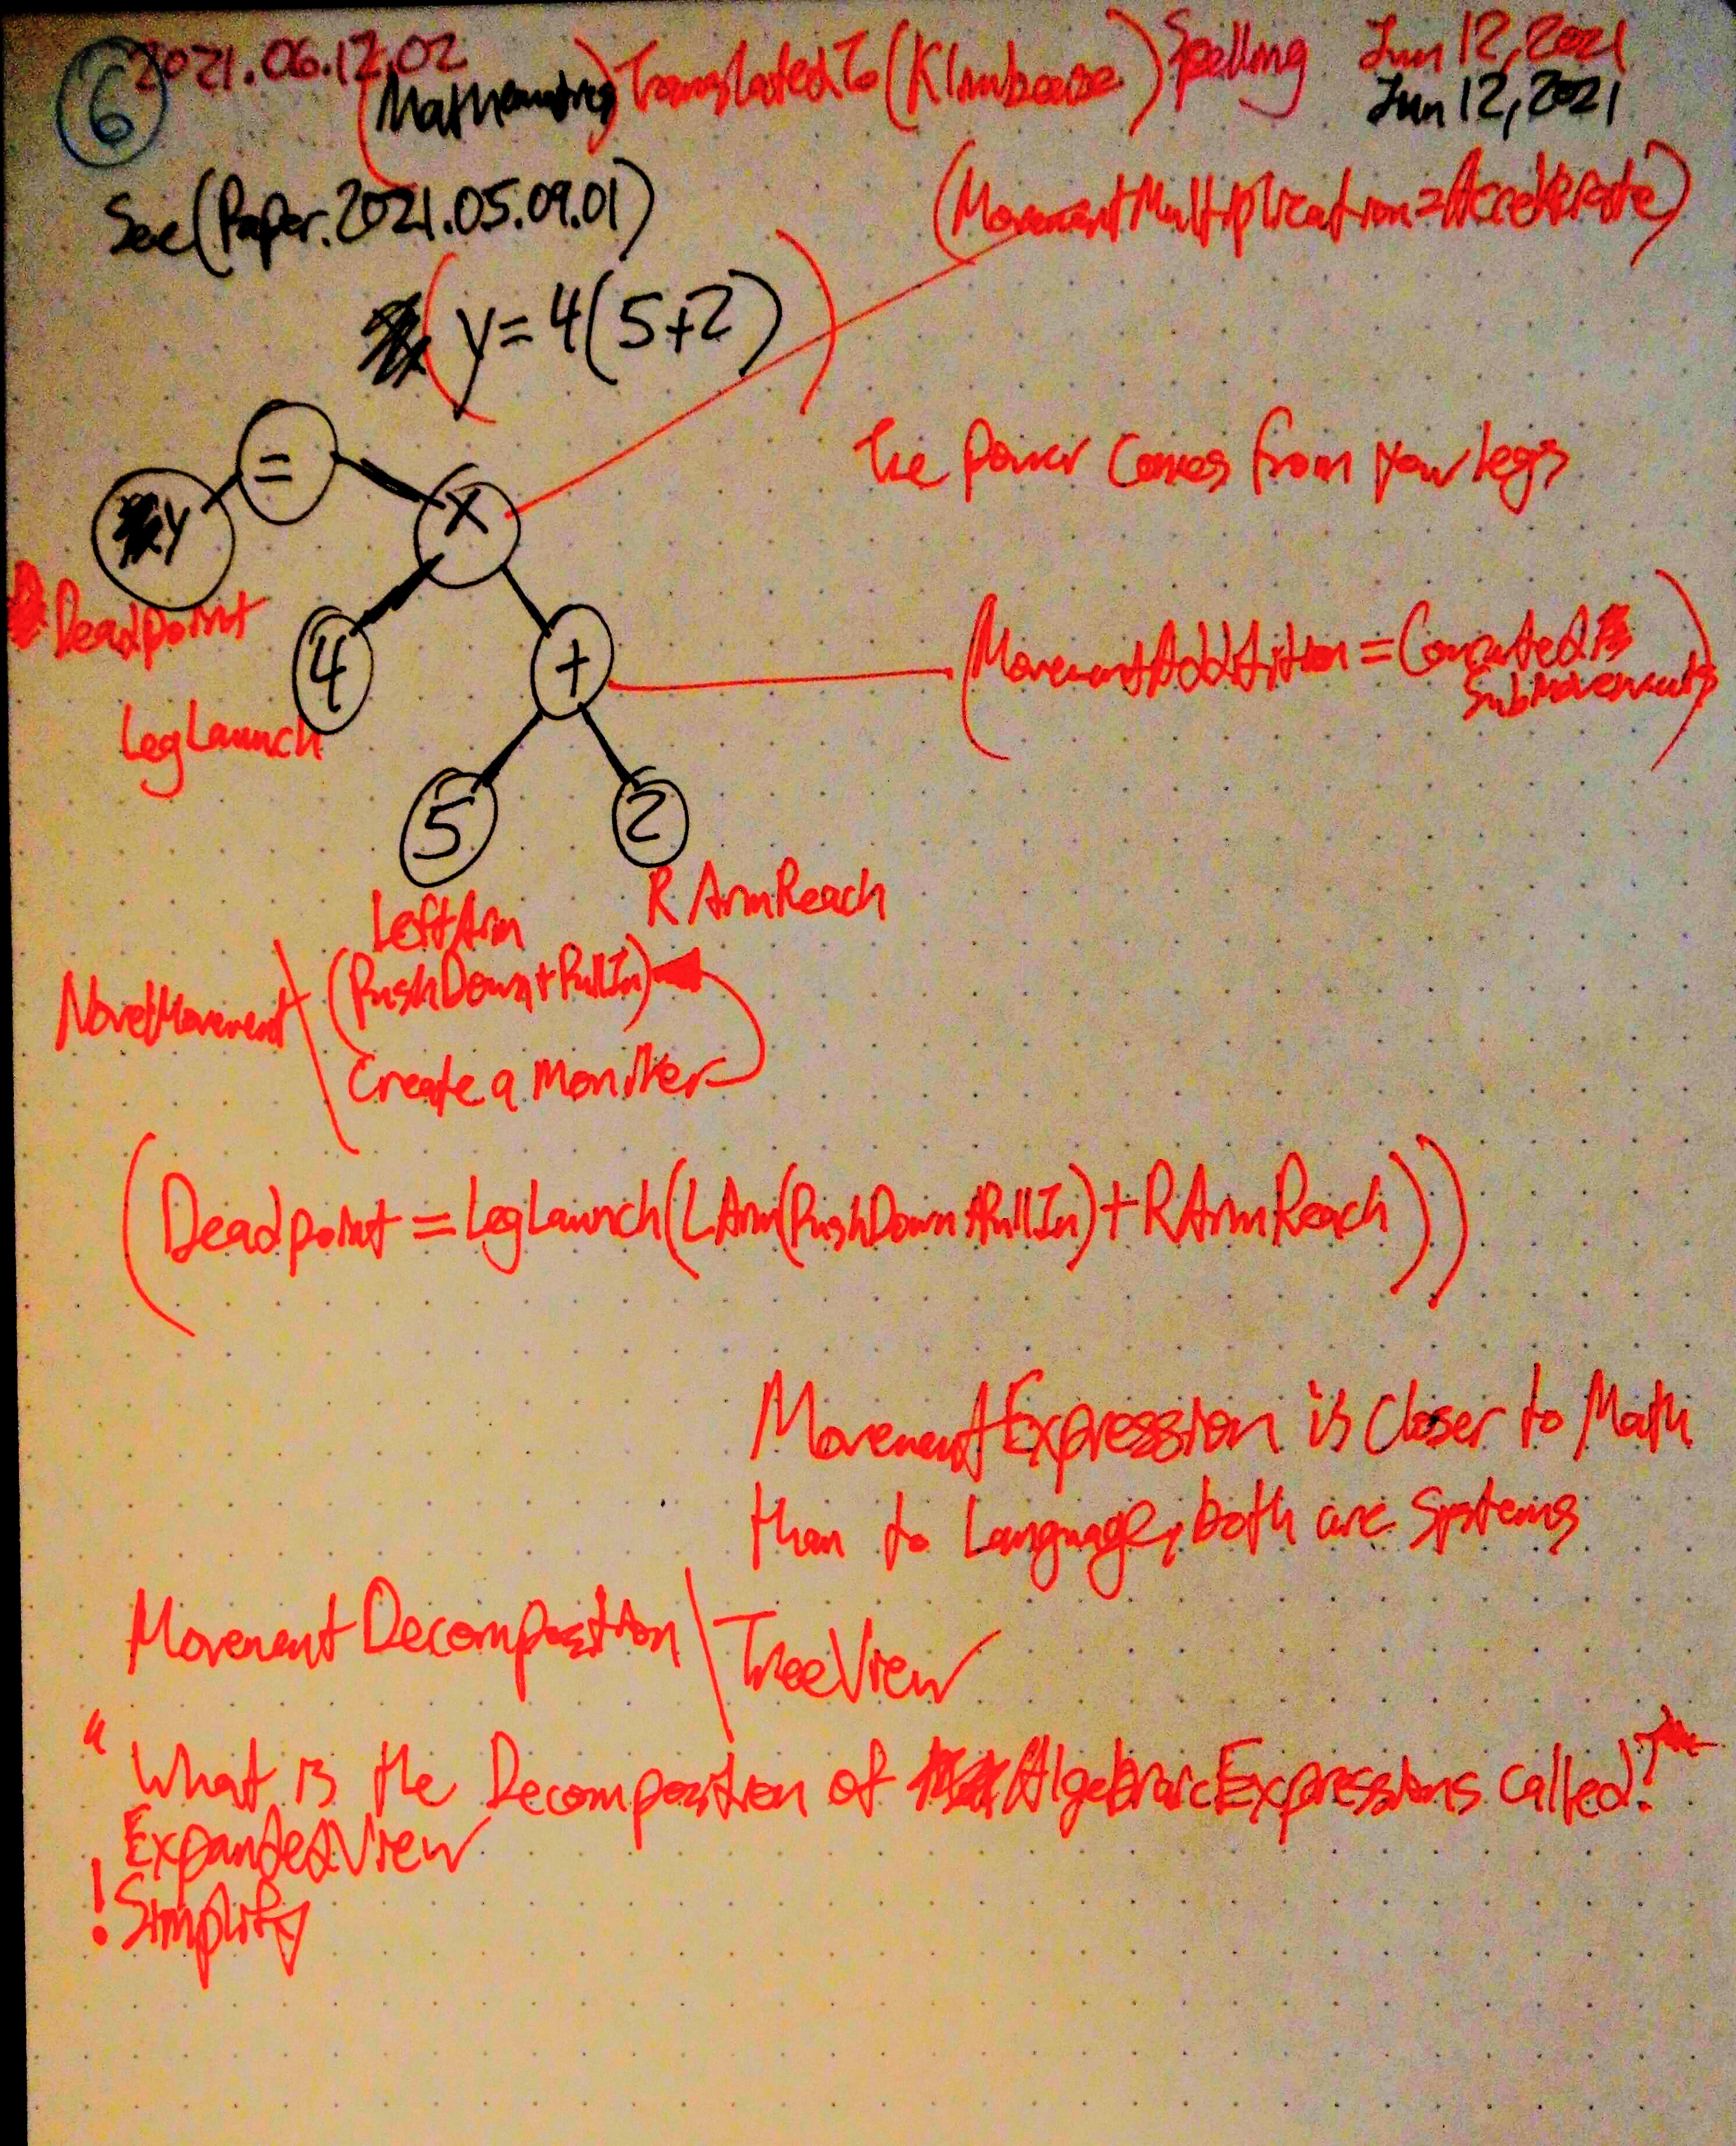 6
2021.06.12.02
(Mathematics) TranslatedTo (Klimbeaire) Spelling Jun 12, 2021
Jun 12, 2021
See (Paper.2021.05.09.01)
(MovementMultiplication = Accelerate)
(y=4(5+2))
=
y
x
The Power Comes from your legs
Deadpoint
4
+
(MovementAddition = Connected
SubMovements)
LegLaunch
5
2
LeftArm
R ArmReach
NovelMovement \ (PushDown+PullIn)
Create a Moniker
(Deadpoint = LegLaunch(LArm(PushDown+PullIn)+RArmReach))
MovementExpression is Closer to Math
than to Language, both are Systems
MovementDecomposition \ TreeView
"What is the Decomposition of AlgebraicExpressions called?"
ExpandedView
! Simplify